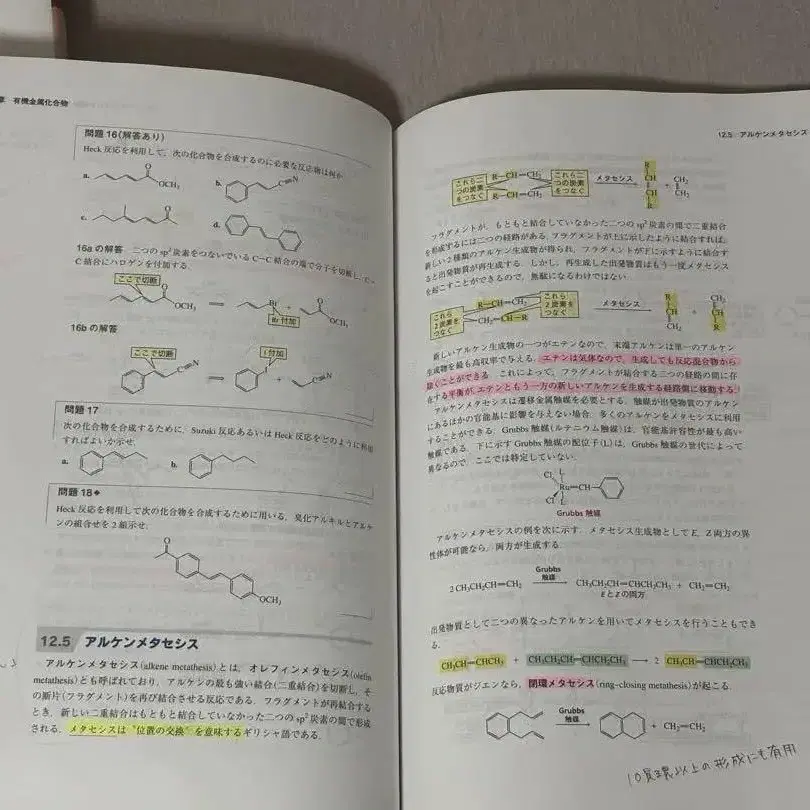 章 有機金属化合物
問題 16(解答あり)
Heck 反応を利用して，次の化合物を合成するのに必要な反応物は何か
a. O OCH₃ b. C≡N
c. O d.
16a の解答 二つの sp² 炭素をつないでいる C−C 結合の端で分子を切断し，C−
C 結合にハロゲンを付加する．
ここで切断
O OCH₃ Br + O OCH₃
Br 付加
16b の解答
ここで切断 I 付加
C≡N I + C≡N
問題 17
次の化合物を合成するために，Suzuki 反応あるいは Heck 反応をどのように利用
すればよいか示せ．
a. b.
問題 18◆
Heck 反応を利用して次の化合物を合成するために用いる，臭化アルキルとアルケ
ンの組合せを 2 組示せ．
O
OCH₃
12.5 アルケンメタセシス
アルケンメタセシス(alkene metathesis)とは，オレフィンメタセシス(olefin
metathesis)とも呼ばれており，アルケンの最も強い結合(二重結合)を切断し，そ
の断片(フラグメント)を再び結合させる反応である．フラグメントが再結合する
とき，新しい二重結合はもともと結合していなかった二つの sp² 炭素の間で形成
される．メタセシスは“位置の交換”を意味するギリシャ語である．
12.5 アルケンメタセシス
これら二つの炭素をつなぐ R−CH=CH₂ R−CH=CH₂ これら二つの炭素をつなぐ メタセシス R CH CH R + CH₂ CH₂
フラグメントが，もともと結合していなかった二つの sp² 炭素の間で二重結合
を形成するには二つの経路がある．フラグメントが上に示したように結合すれば，
新しい 2 種類のアルケン生成物が得られ，フラグメントが下に示すように結合す
ると出発物質が再生する．しかし，再生した出発物質はもう一度メタセシス
を起こすことができるので，無駄になるわけではない．
これら 2 炭素をつなぐ R−CH=CH₂ CH₂=CH−R これら 2 炭素をつなぐ メタセシス R CH CH₂ + CH₂ CH R
新しいアルケン生成物の一つがエテンなので，末端アルケンは単一のアルケン
生成物を最も高収率で与える．エテンは気体なので，生成しても反応混合物から
除くことができる．これによって，フラグメントが結合する二つの経路の間に存
在する平衡が，エテンともう一方の新しいアルケンを生成する経路側に移動する．
アルケンメタセシスは遷移金属触媒を必要とする．触媒が出発物質のアルケン
にあるほかの官能基に影響を与えない場合，多くのアルケンをメタセシスに利用
することができる．Grubbs 触媒(ルテニウム触媒)は，官能基許容性が最も高い
触媒である．下に示す Grubbs 触媒の配位子(L)は，Grubbs 触媒の世代によって
異なるので，ここでは特定していない．
Cl L
Ru=CH
Cl L
Grubbs 触媒
アルケンメタセシスの例を次に示す．メタセシス生成物として E，Z 両方の異
性体が可能なら，両方が生成する．
2 CH₃CH₂CH=CH₂ Grubbs 触媒 CH₃CH₂CH=CHCH₂CH₃ + CH₂=CH₂
E と Z の両方
出発物質として二つの異なったアルケンを用いてメタセシスを行うこともでき
る．
CH₃CH=CHCH₃ + CH₃CH₂CH=CHCH₂CH₃ → 2 CH₃CH=CHCH₂CH₃
反応物質がジエンなら，閉環メタセシス(ring-closing metathesis)が起こる．
Grubbs 触媒 + CH₂=CH₂
以上の形成にも有用